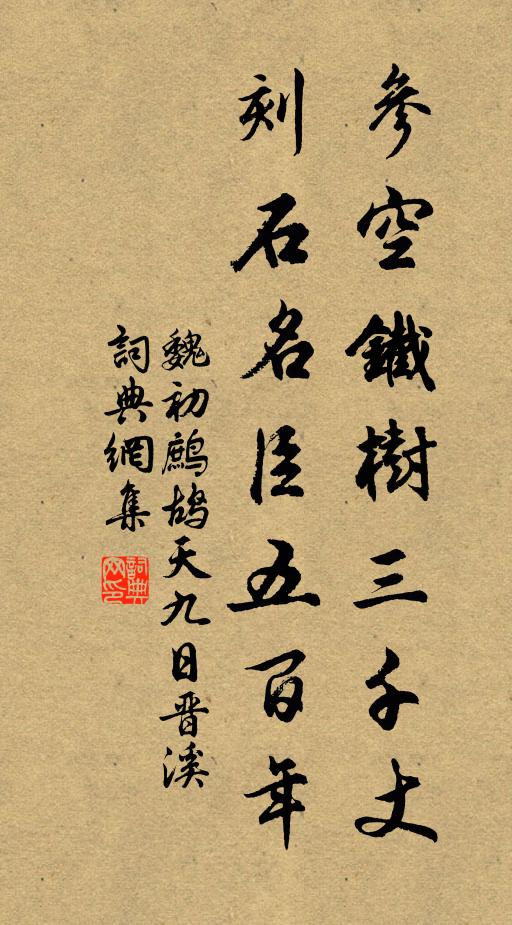 參空鐵樹三千丈
刻石名臣五百年
魏初鷓鴣天九日晋溪
詞典網集
詞典網印